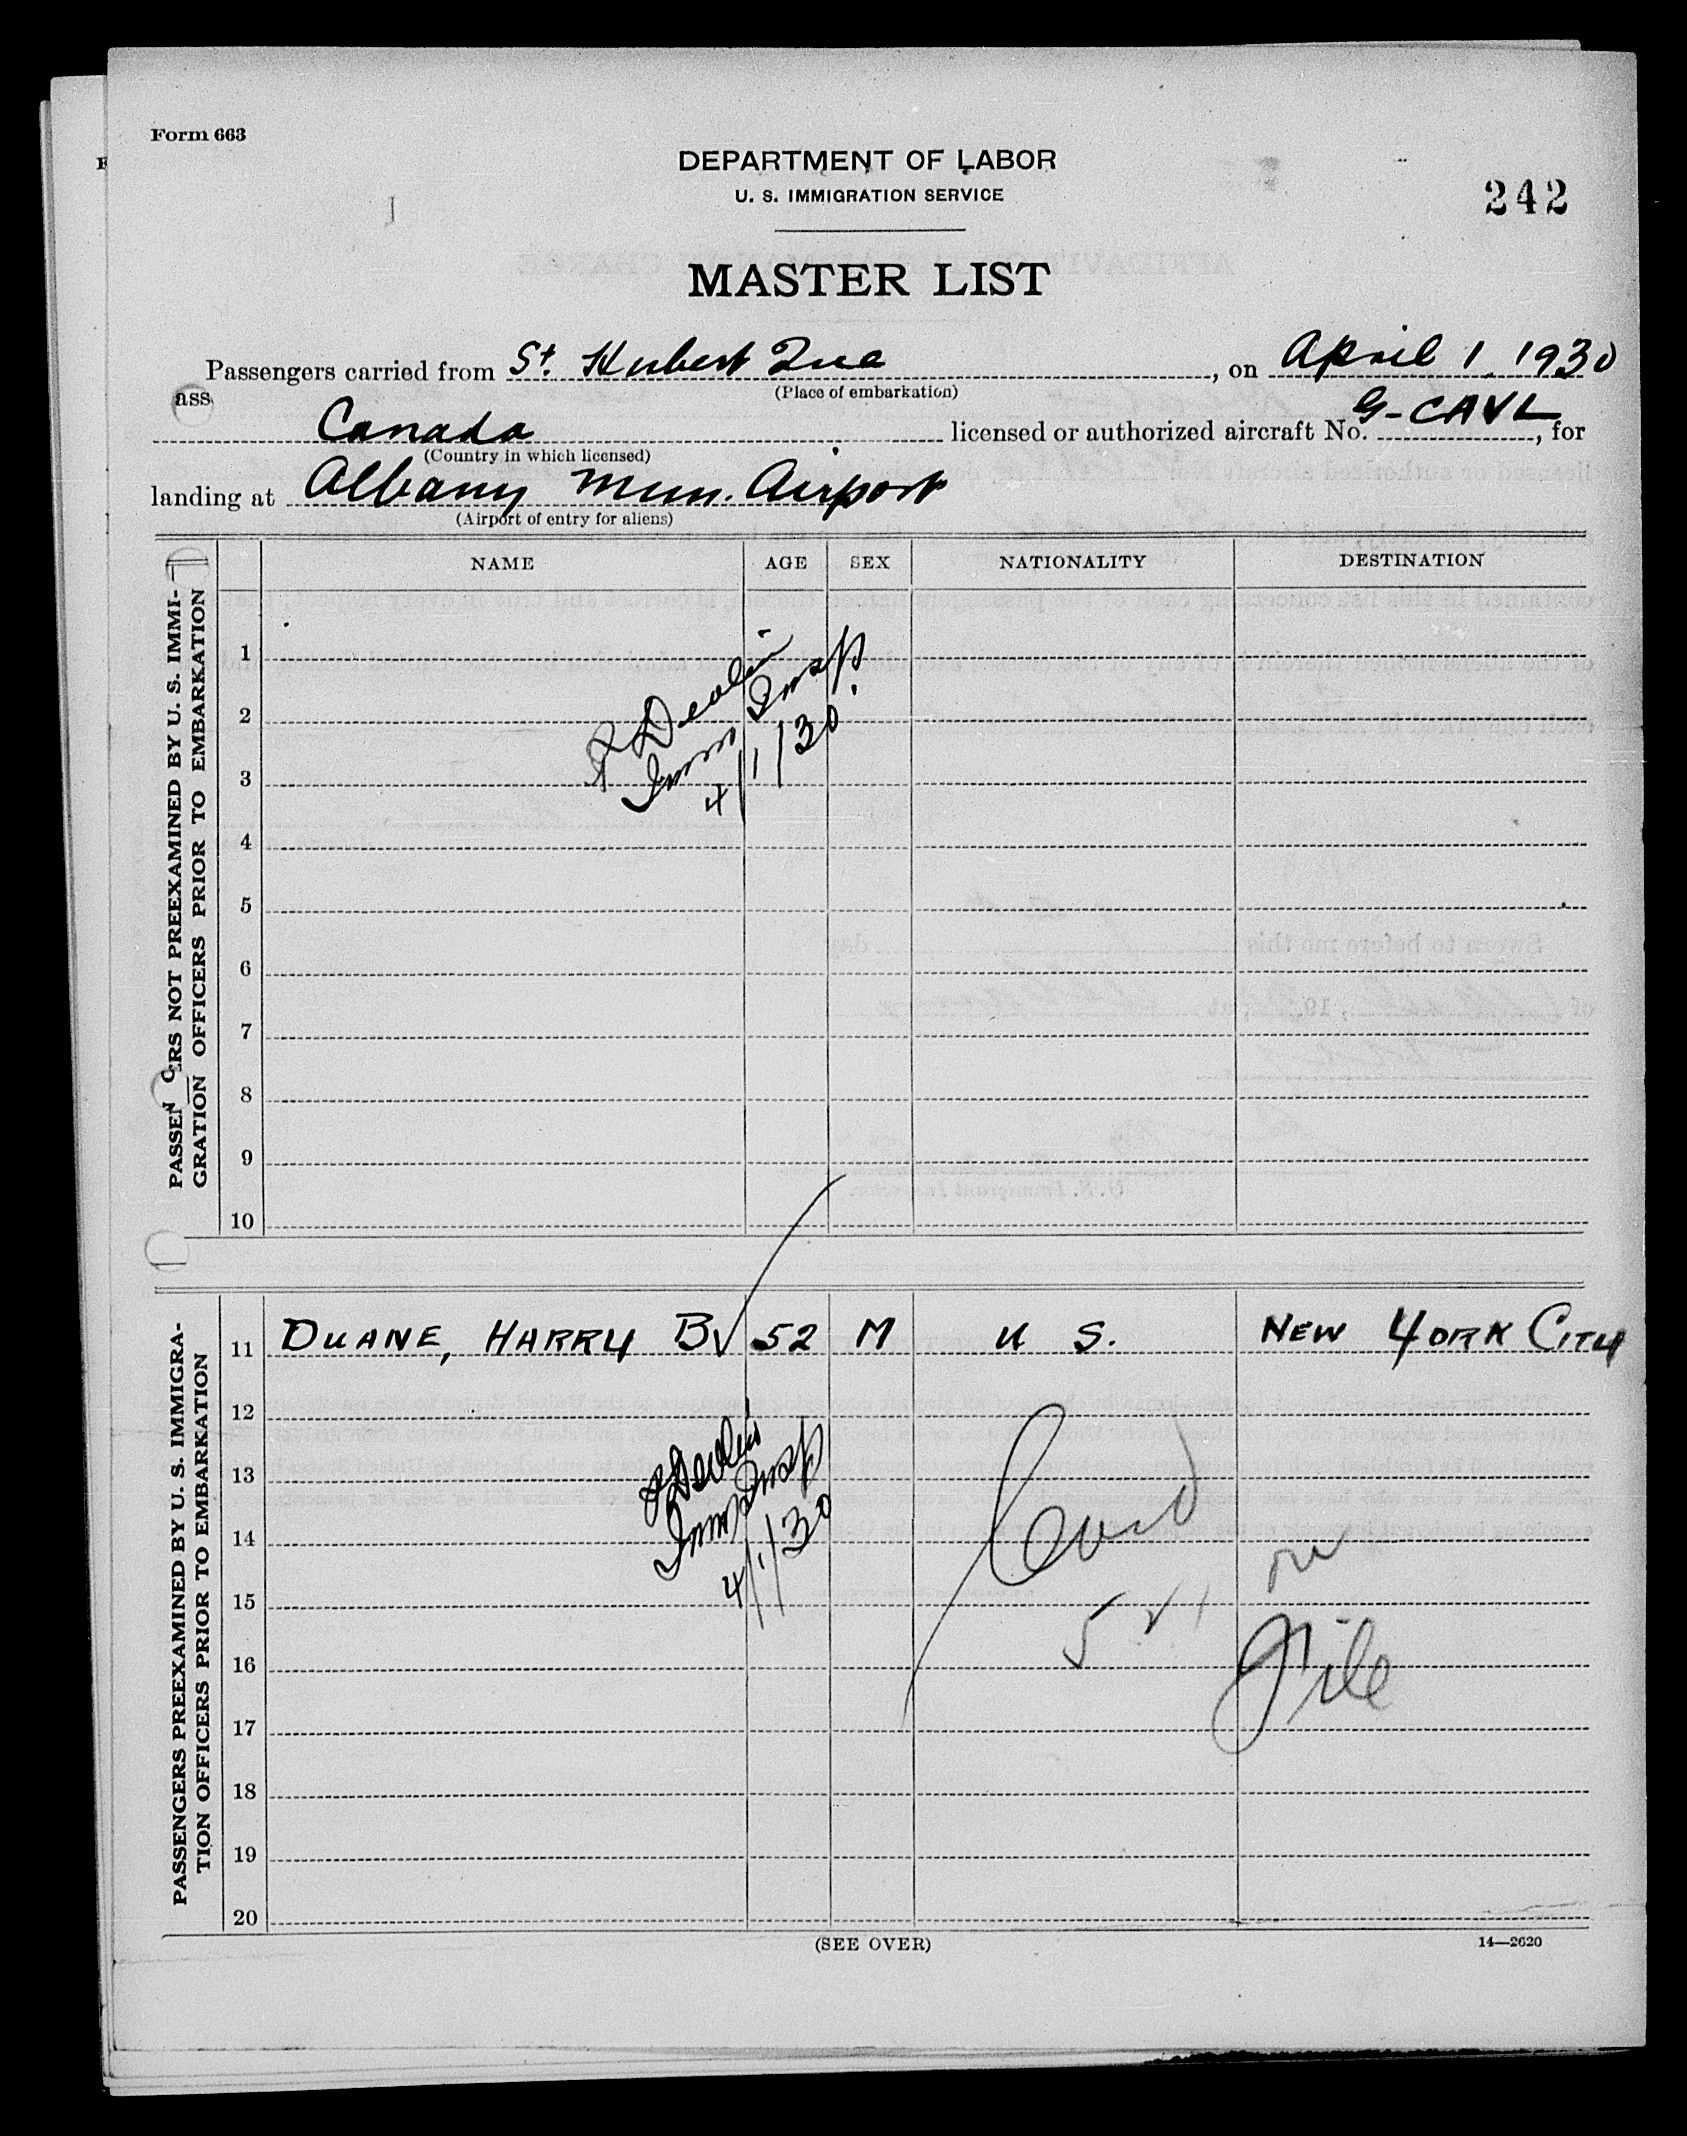 Form 663
DEPARTMENT OF LABOR
U. S. IMMIGRATION SERVICE
242
MASTER LIST
Passengers carried from St. Hubert Que, on April 1, 1930
(Place of embarkation)
ass
Canada licensed or authorized aircraft No. G-CAVL, for
(Country in which licensed)
landing at Albany Mun. Airport
(Airport of entry for aliens)
NAME AGE SEX NATIONALITY DESTINATION
PASSENGERS NOT PREEXAMINED BY U. S. IMMI-
GRATION OFFICERS PRIOR TO EMBARKATION
1
2
3
4
5
6
7
8
9
10
Devlin
Imm Insp.
4/1/30
PASSENGERS PREEXAMINED BY U. S. IMMIGRA-
TION OFFICERS PRIOR TO EMBARKATION
11 DUANE, HARRY B 52 M U S. NEW YORK CITY
12
13
14
15
16
17
18
19
20
Devlin
Imm Insp
4/1/30
Card
File
(SEE OVER)
14—2620